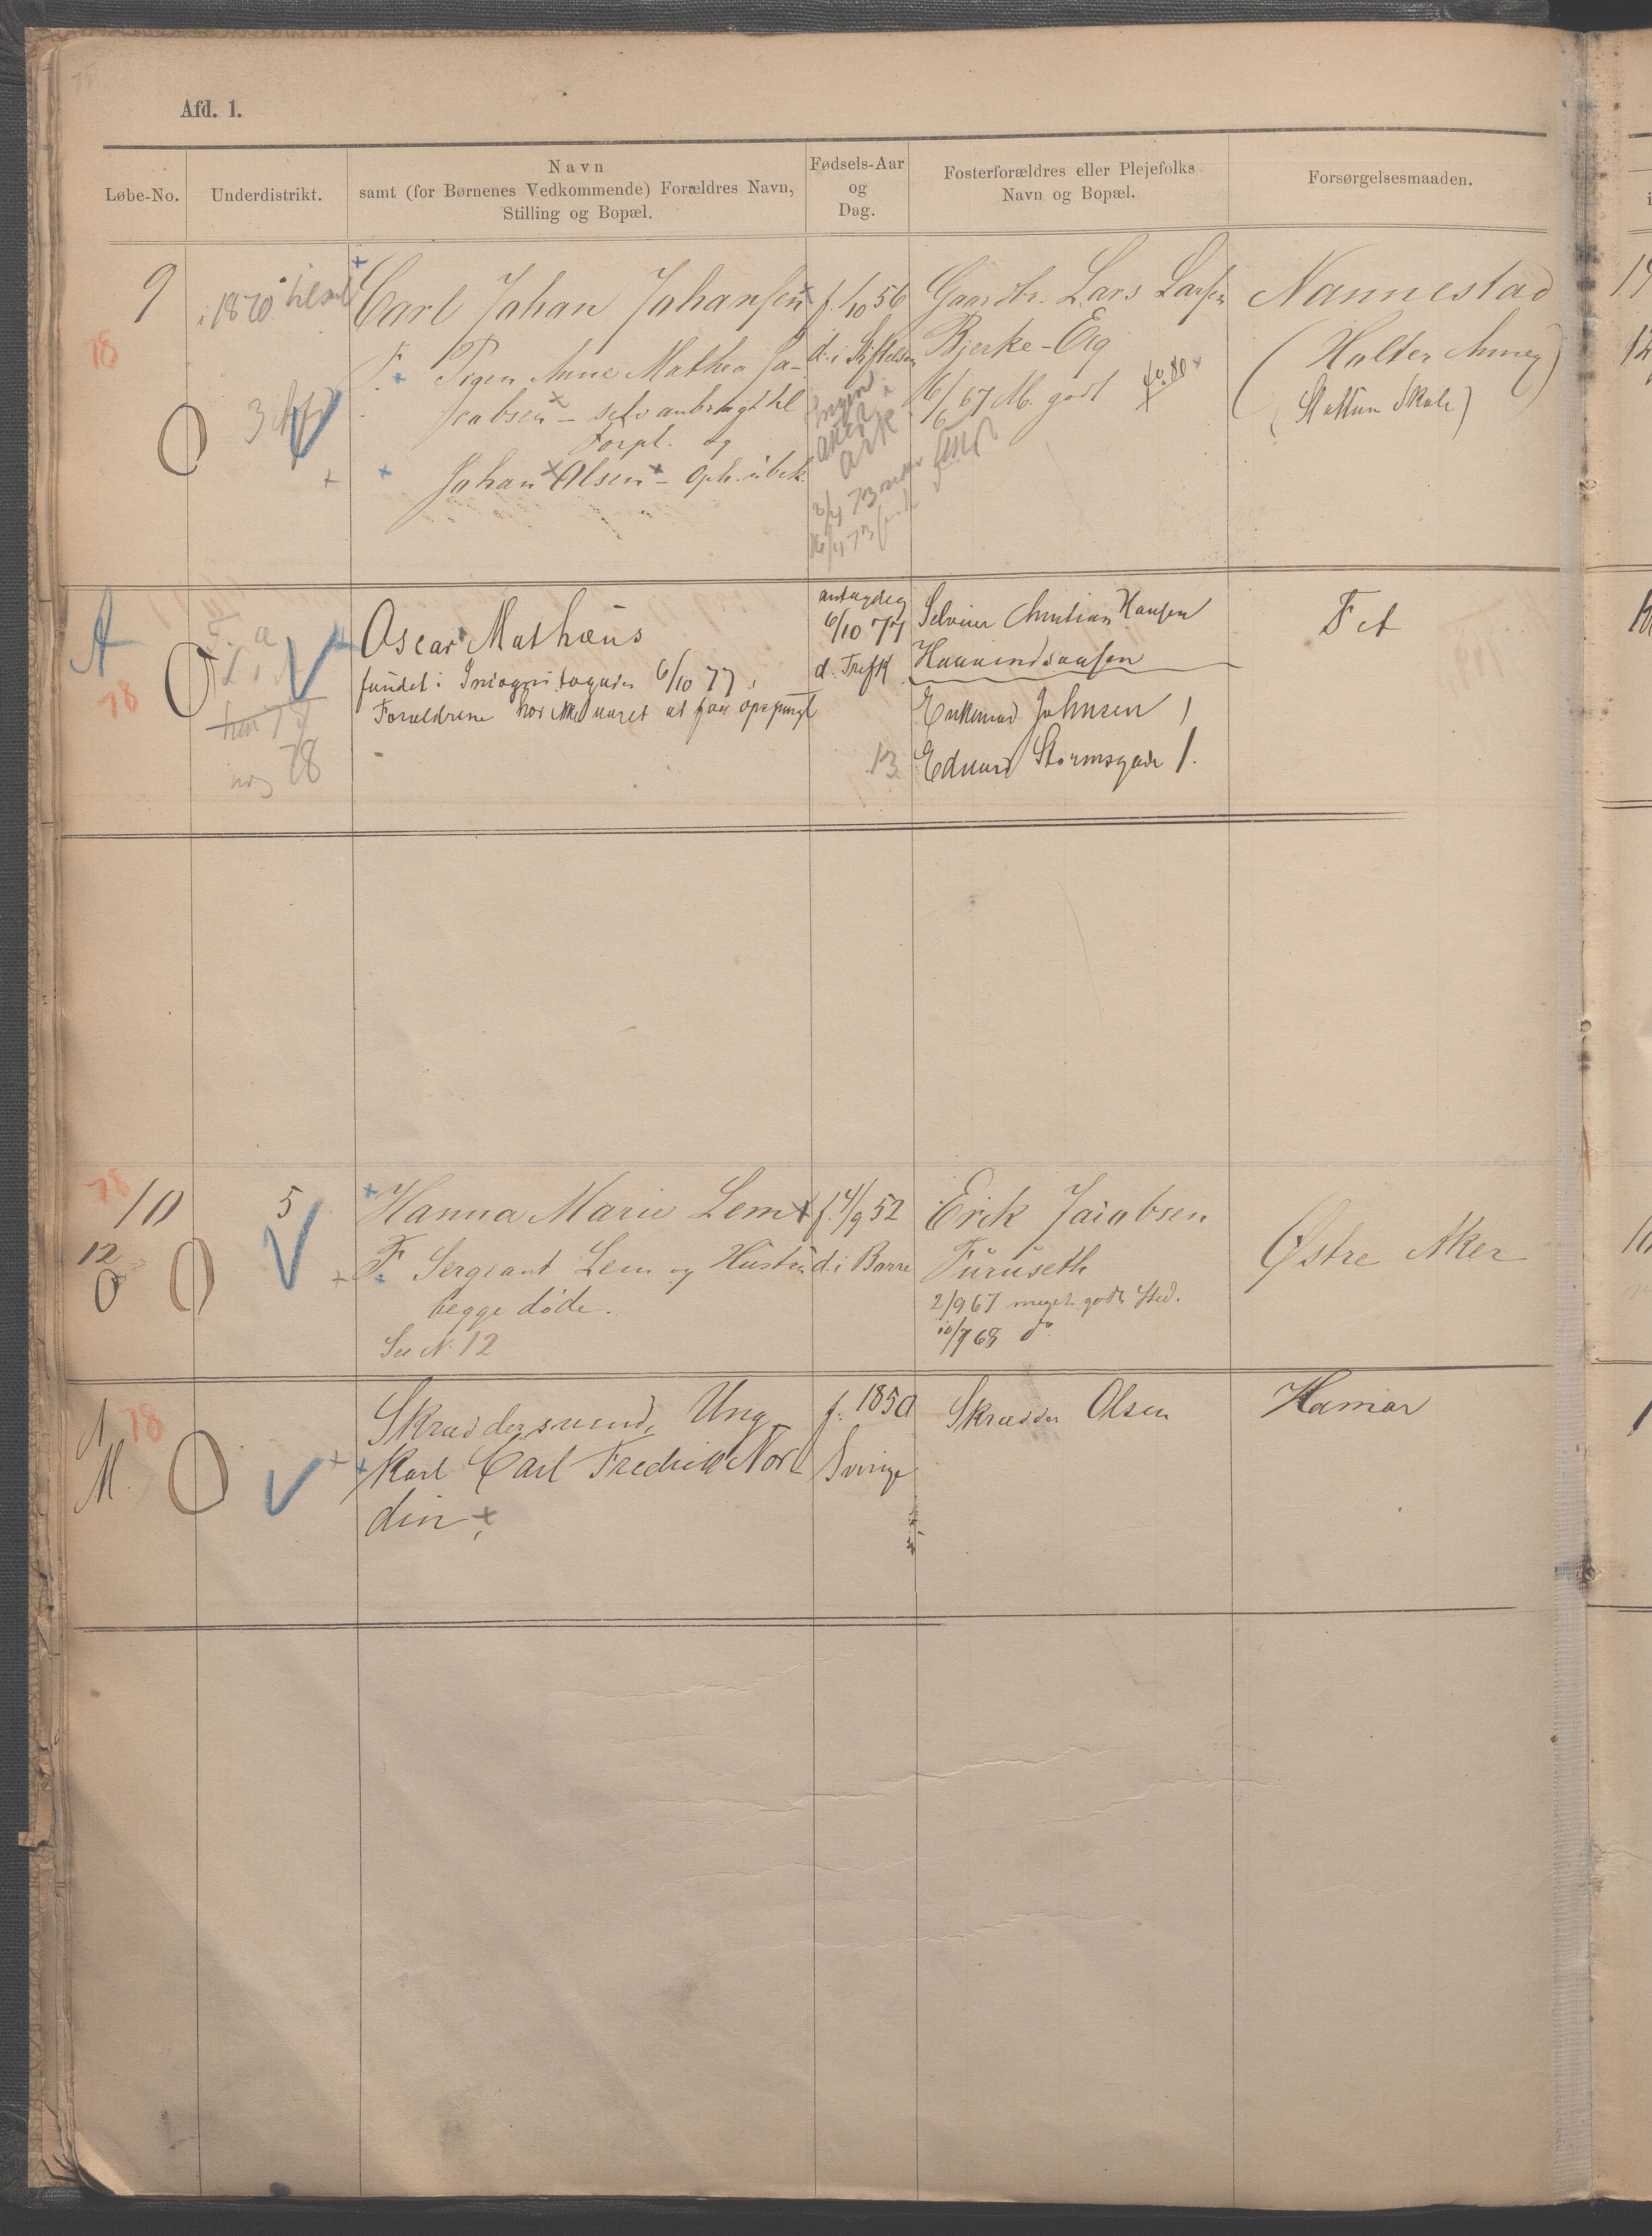 75
Afd. 1.
Løbe-No.
Underdistrikt.
Navn
samt (for Børnenes Vedkommende) Forældres Navn,
Stilling og Bopæl.
Fødsels-Aar
og
Dag.
Fosterforældres eller Plejefolks
Navn og Bopæl.
Forsørgelsesmaaden.
9
78
i 1870
3
Carl Johan Johansen
F. Pigen Anne Mathea Ja-
cobsen - selv anbragt til
Forpl. og
Johan Olsen - Oph. ubek.
f. 1/10 56
d. i Stiftelsen
Gaardbr. Lars Larsen
Bjerke-Eig
16/6 67 M. godt
Nannestad
(Holter Annex)
(Skole)
A
78
78
Oscar Mathæus
fundet i Incognitogaden 6/10 77,
Forældrene har ikke været at faa opspurgt
antagelig
6/10 77
13
Selveier Christian Hansen
Enkemad Johnsen
Edvard Stormsgade 1.
Fet
78
10
12
5
Hanna Marie Lem
F Sergeant Lem og Hustru
begge døde.
See N. 12
f. 4/9 52
d. i Borre
Erik Jacobsen
Furuseth
2/9 67 meget godt Sted.
10/7 68 do
Østre Aker
78
M.
Skræddersvend, Ung-
karl Carl Fredrik Nor-
din
f. 1850
Sverige
Skrædder Olsen
Hamar